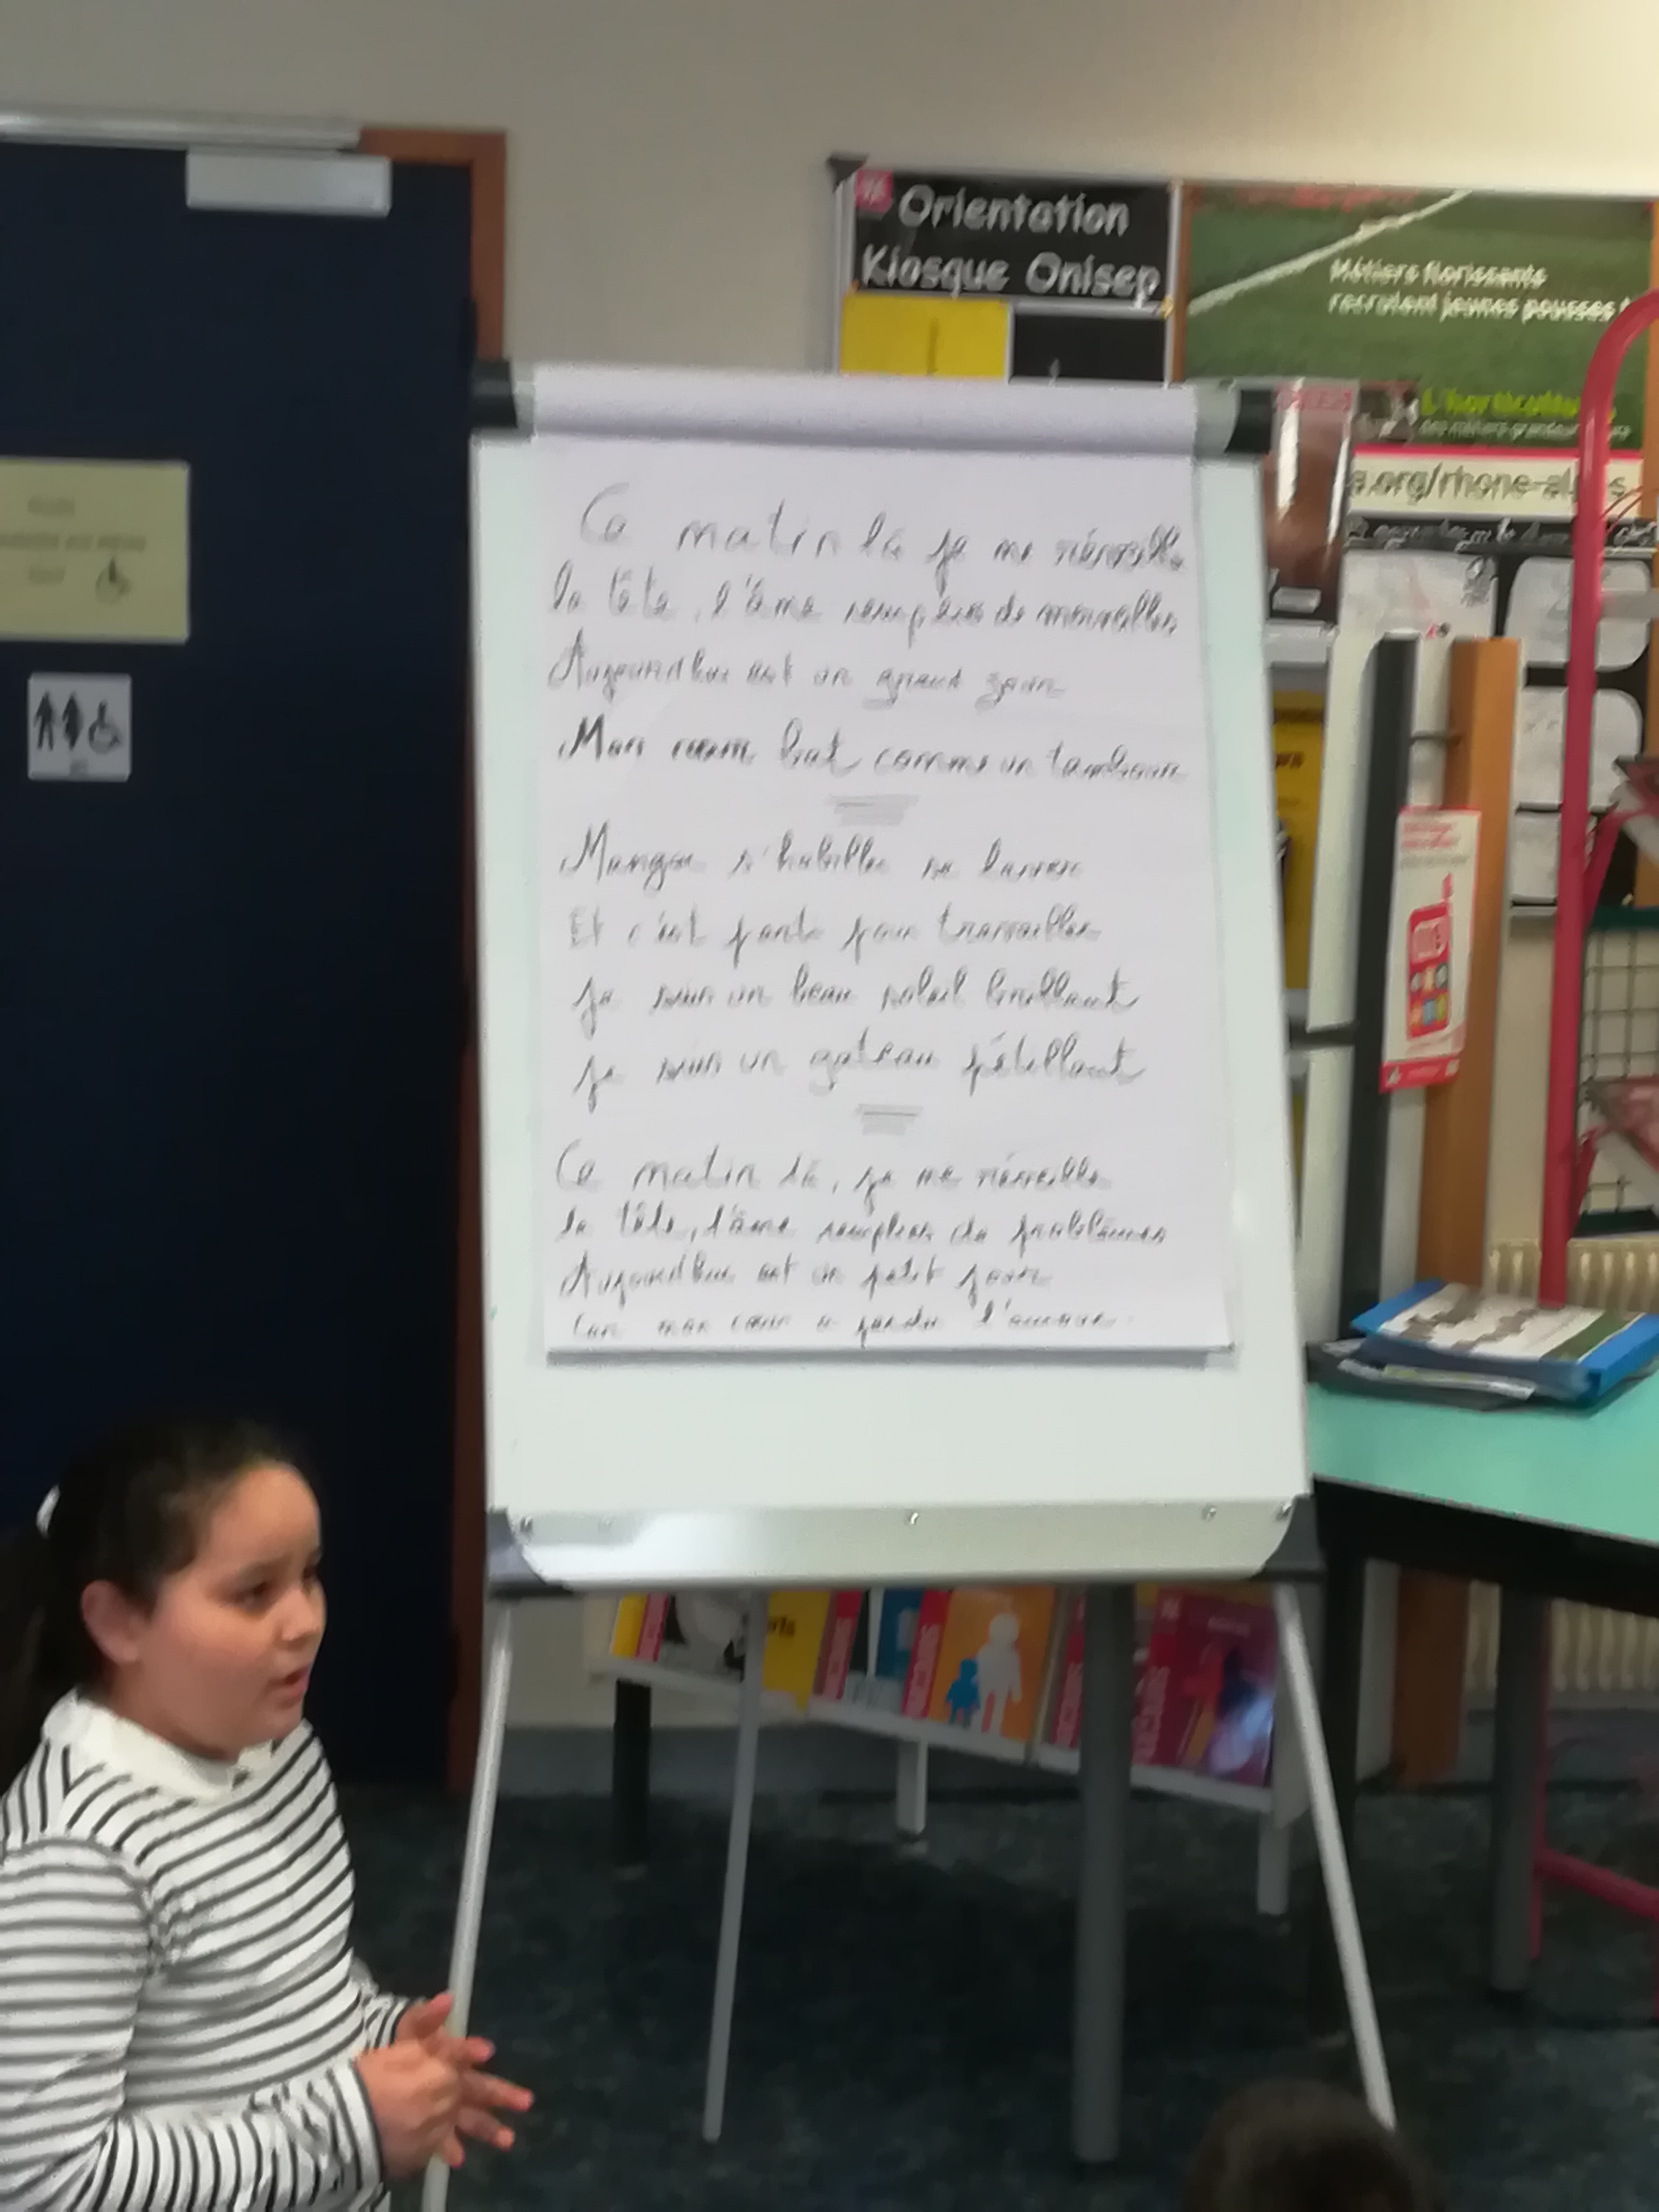 Orientation
Kiosque Onisep
Métiers florissants
recrutent jeunes pousses !
L'horticulture
.org/rhone-alpes
Ce matin là je me réveille
la tête, l'âme remplies de merveilles
Aujourd'hui est un grand jour
Mon cœur bat comme un tambour
Manger s'habiller se laver
Et c'est parti pour travailler
Je suis un beau soleil brillant
Je suis un gateau pétillant
Ce matin là, je me réveille
la tête, l'âme remplies de problèmes
Aujourd'hui est un petit jour
Car mon cœur a perdu l'amour